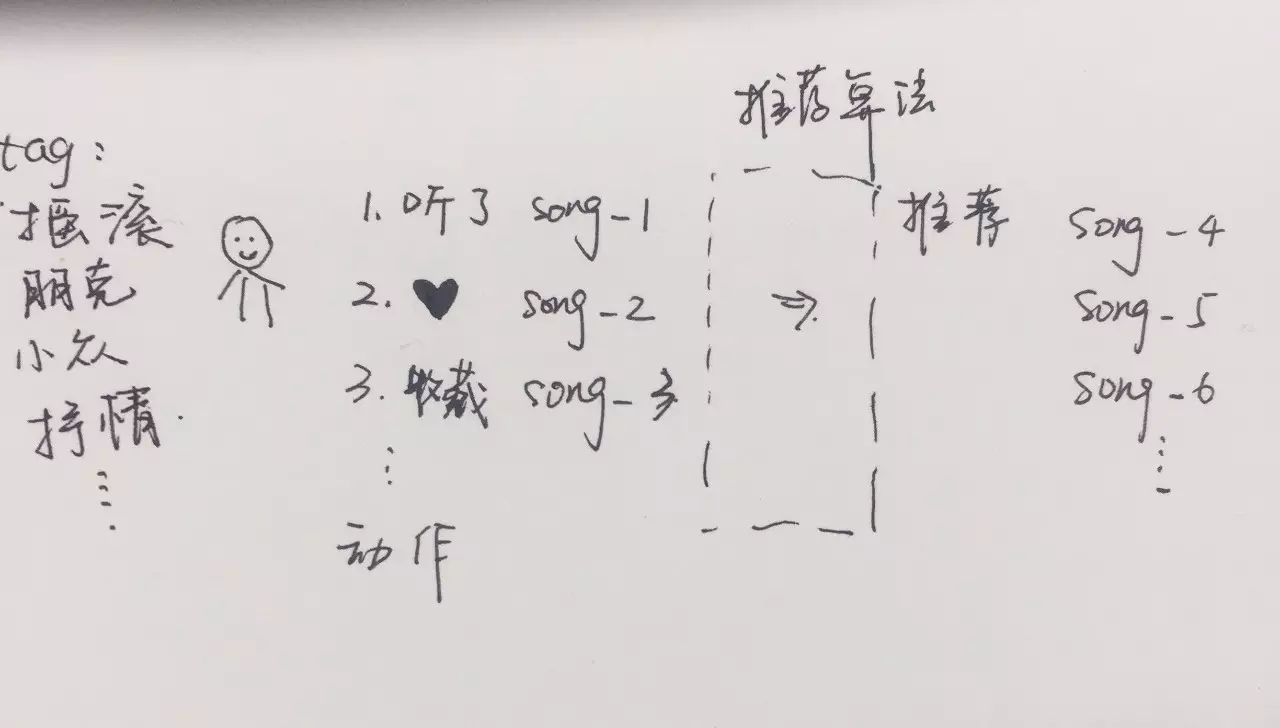 推荐算法
tag:
摇滚
朋克
小众
抒情
...
1. 听了 song-1
2. ♥ song-2
3. 收藏 song-3
...
动作
⇒
推荐 song-4
song-5
song-6
...